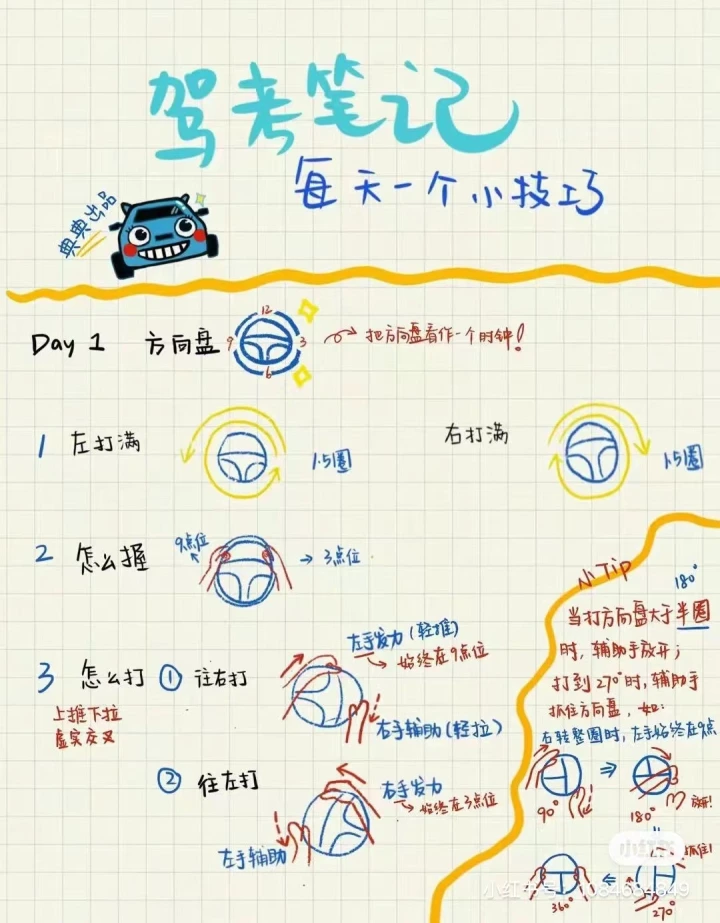 驾考笔记
每天一个小技巧
典典出品
Day 1 方向盘
12
9 3
6
把方向盘看作一个时钟!
1 左打满
1.5圈
右打满
1.5圈
2 怎么握
9点位
3点位
3 怎么打
上推下拉
虚实交叉
① 往右打
左手发力(轻推)
始终在9点位
右手辅助(轻拉)
② 往左打
右手发力
始终在3点位
左手辅助
小Tip
180°
当打方向盘大于半圈
时,辅助手放开;
打到270°时,辅助手
抓住方向盘,如:
右转整圈时,左手始终在9点
90°
180°
放开!
抓住!
360°
270°
小红书